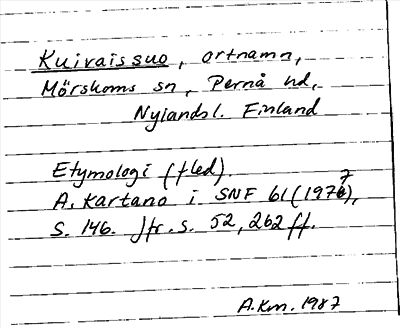 Kuivaissuo, ortnamn,
Mörskoms sn, Pernå hd,
Nylandsl. Finland
Etymologi (fled).
A. Kartano i SNF 61 (1977),
S. 146. Jfr. s. 52, 262 ff.
A.Km. 1987